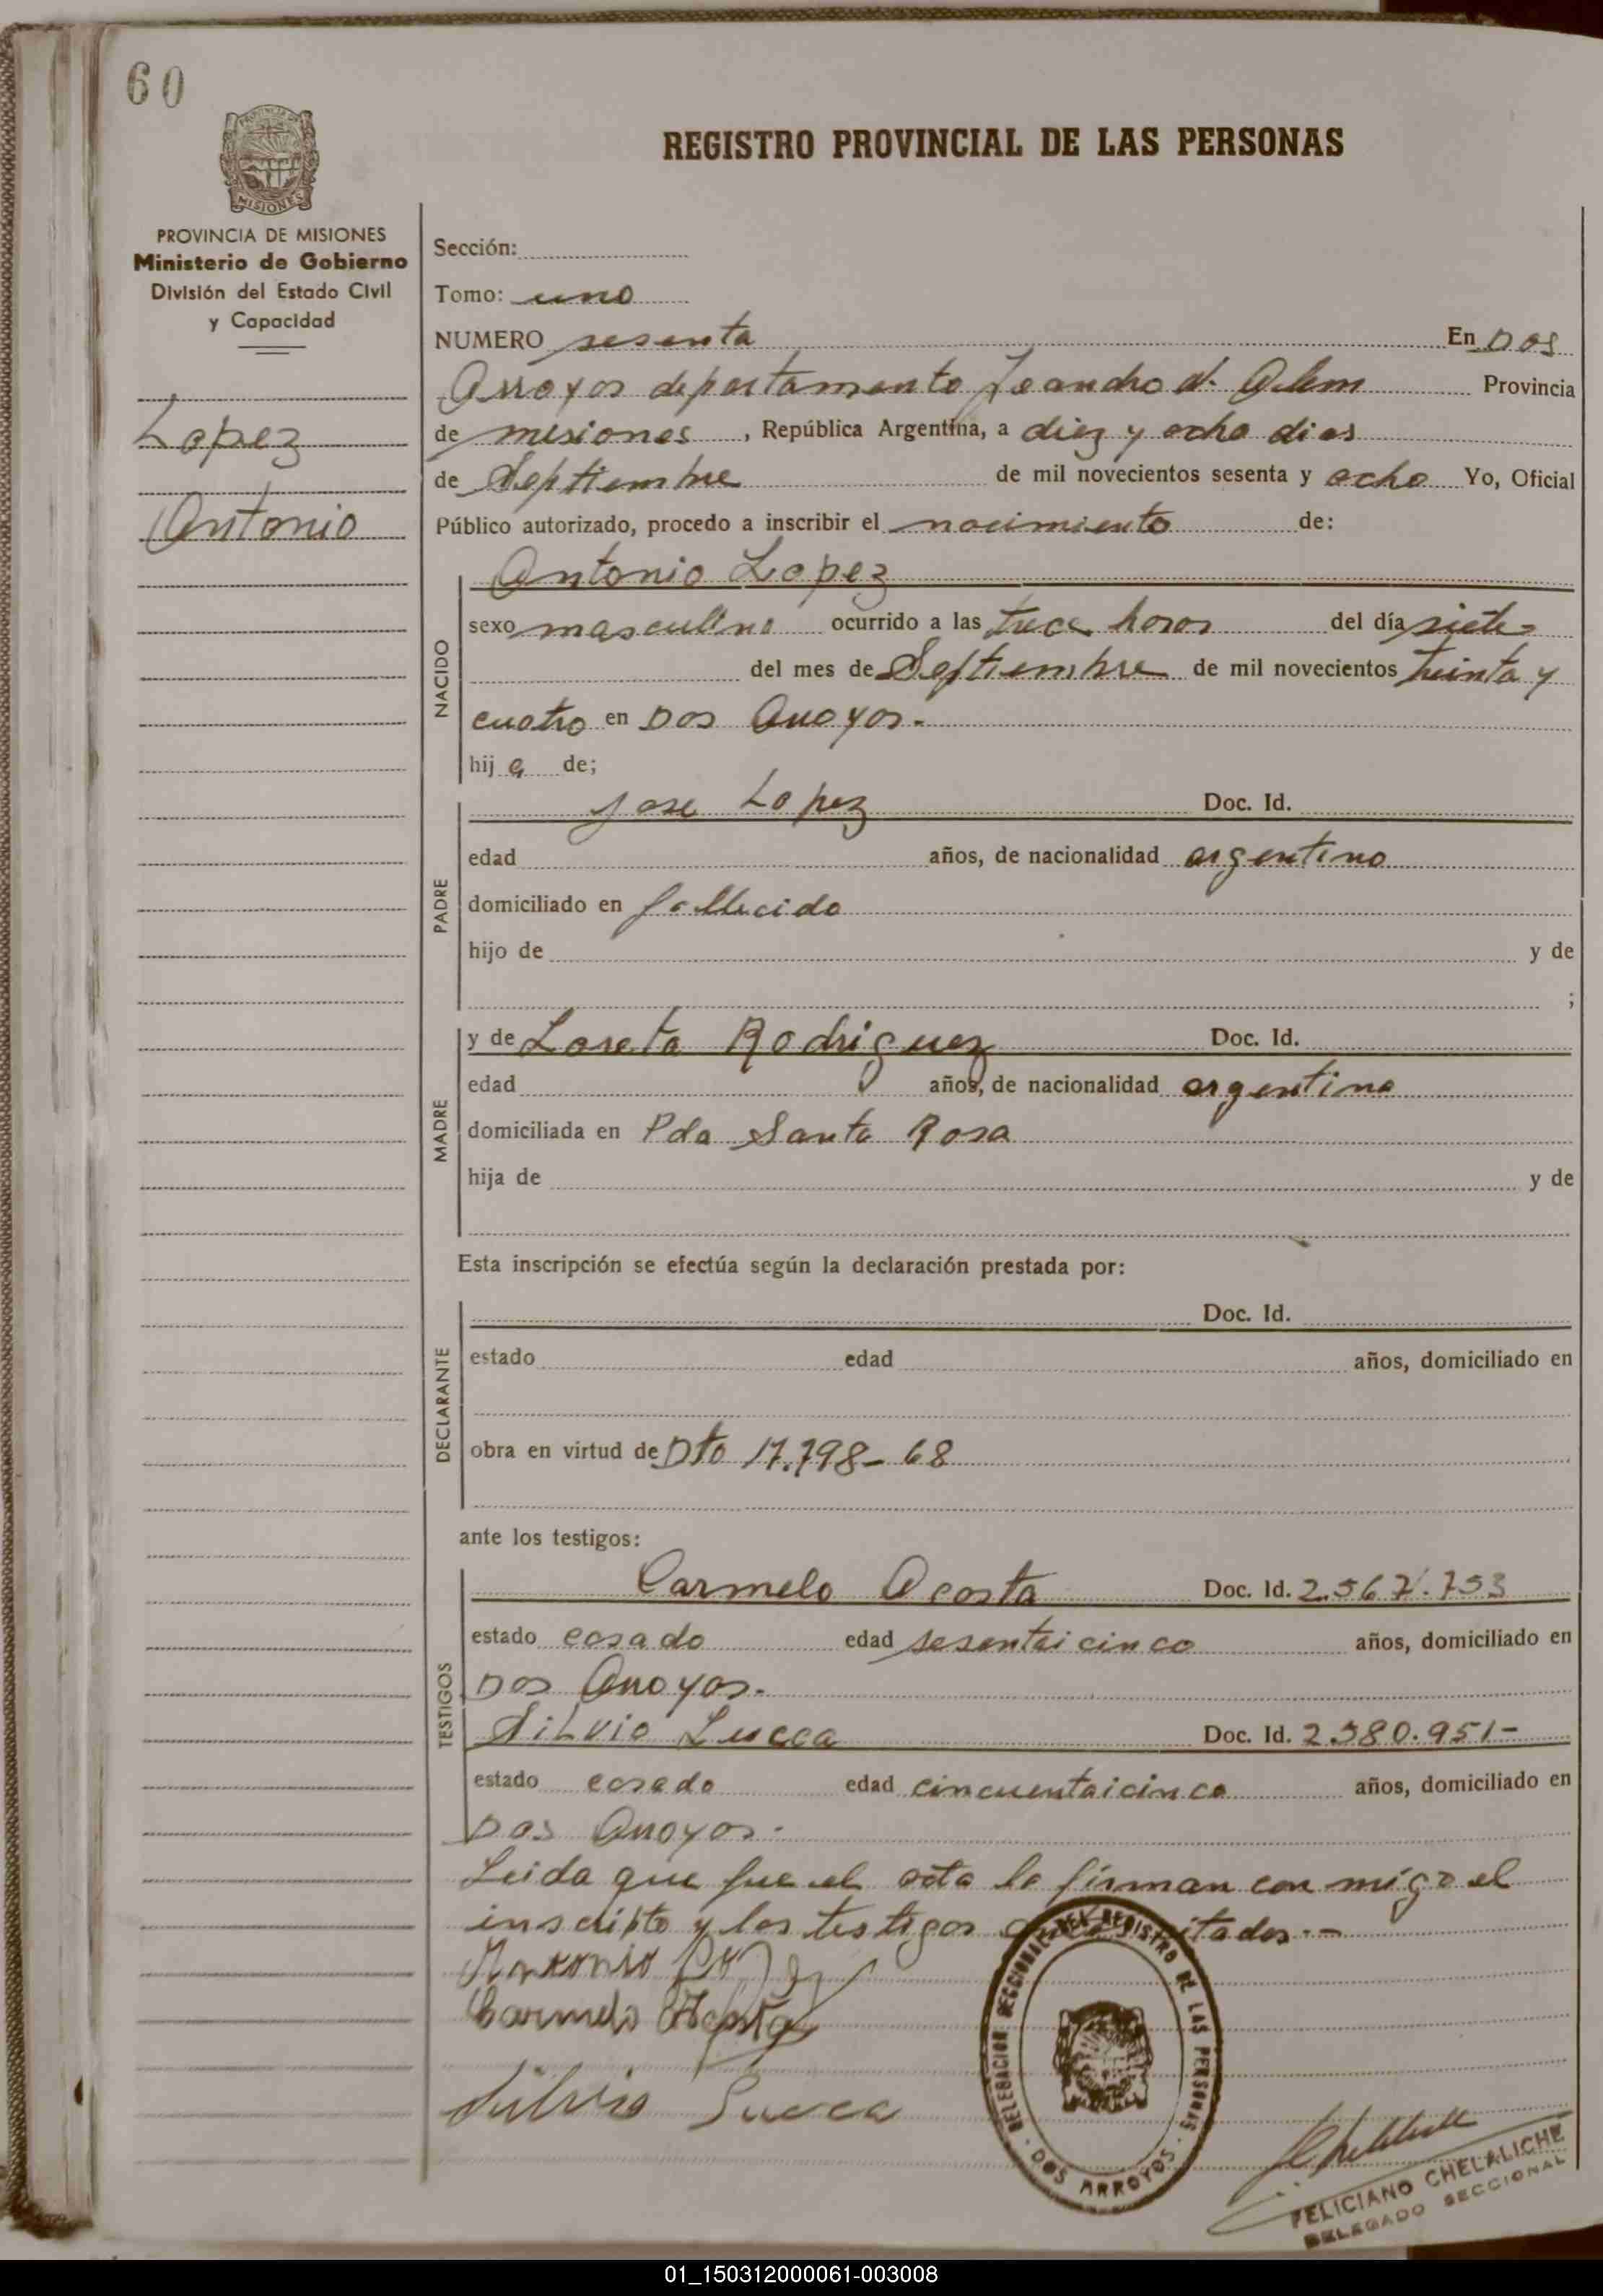 60
PROVINCIA DE MISIONES
Ministerio de Gobierno
División del Estado Civil
y Capacidad
Lopez
Antonio
REGISTRO PROVINCIAL DE LAS PERSONAS
Sección:
Tomo: uno
NUMERO sesenta En Dos
Arroyos departamento Leandro N. Alem Provincia
de misiones, República Argentina, a diez y ocho dias
de Septiembre de mil novecientos sesenta y ocho Yo, Oficial
Público autorizado, procedo a inscribir el nacimiento de:
NACIDO
Antonio Lopez
sexo masculino ocurrido a las trece horas del día siete
del mes de Septiembre de mil novecientos treinta y
cuatro en Dos Arroyos.
hij o de;
PADRE
Jose Lopez Doc. Id.
edad años, de nacionalidad argentino
domiciliado en fallecido
hijo de y de
;
MADRE
y de Loreta Rodriguez Doc. Id.
edad años, de nacionalidad argentina
domiciliada en Pda Santa Rosa
hija de y de
Esta inscripción se efectúa según la declaración prestada por:
DECLARANTE
Doc. Id.
estado edad años, domiciliado en
obra en virtud de Dto 17.798-68
ante los testigos:
TESTIGOS
Carmelo Acosta Doc. Id. 2.567.753
estado casado edad sesentaicinco años, domiciliado en
Dos Arroyos.
Silvio Lucca Doc. Id. 2.580.951-
estado casado edad cincuentaicinco años, domiciliado en
Dos Arroyos.
Leida que fue el acta la firman con migo el
inscripto y los testigos citados.-
Antonio Lopez
Carmelo Acosta
Silvio Lucca
DELEGACION SECCIONAL DEL REGISTRO DE LAS PERSONAS
DOS ARROYOS
FELICIANO CHELALICHE
DELEGADO SECCIONAL
01_150312000061-003008